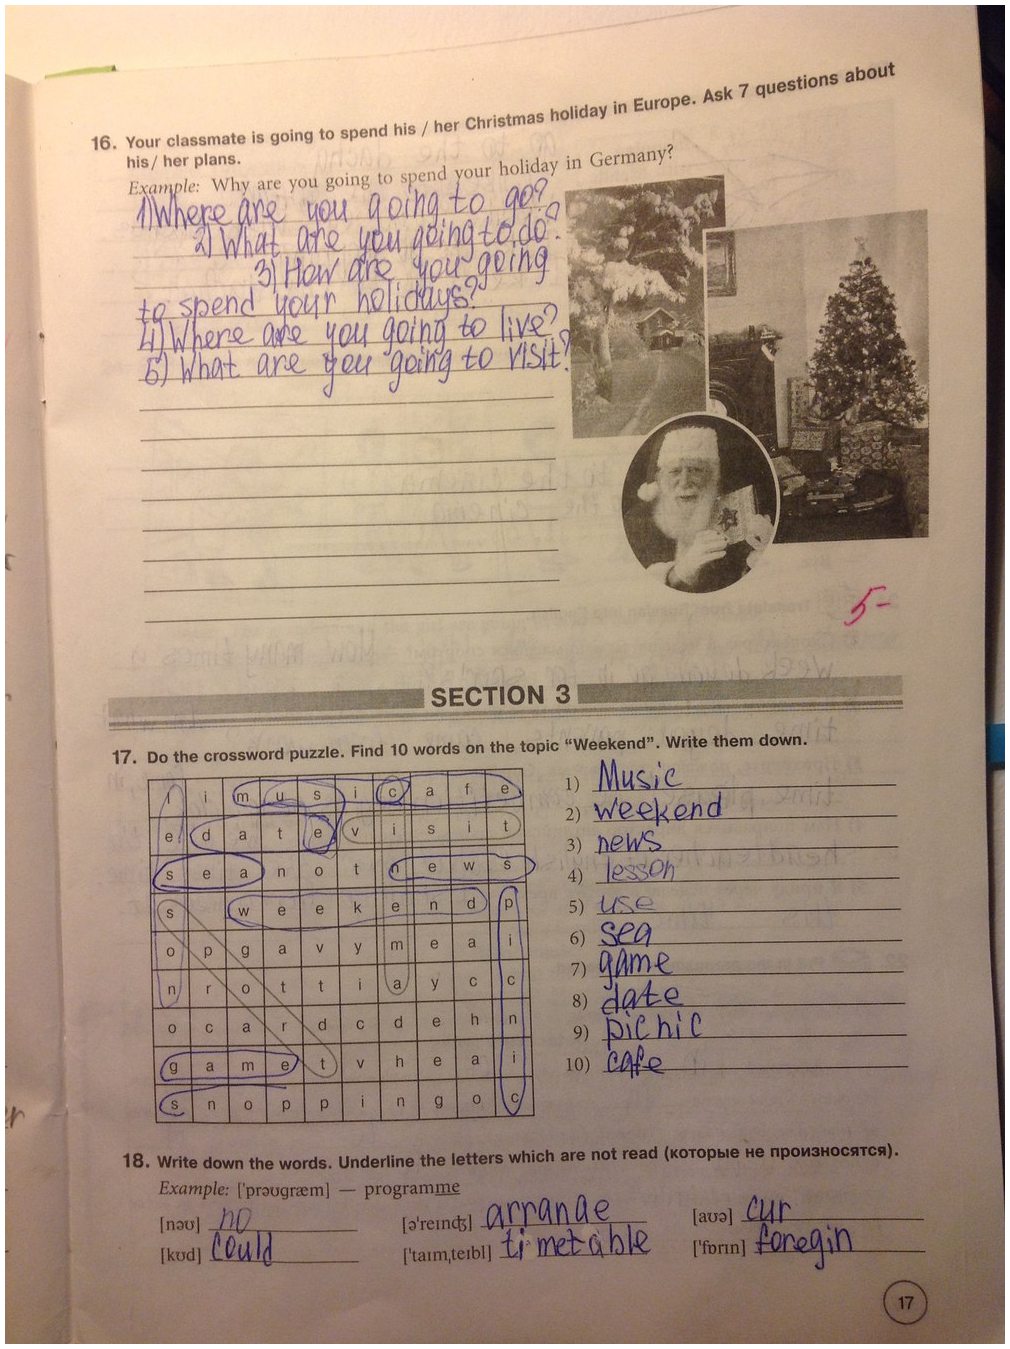 16. Your classmate is going to spend his / her Christmas holiday in Europe. Ask 7 questions about
his / her plans.
Example: Why are you going to spend your holiday in Germany?
1) Where are you going to go?
2) What are you going to do?
3) How are you going
to spend your holidays?
4) Where are you going to live?
5) What are you going to visit?
5-
SECTION 3
17. Do the crossword puzzle. Find 10 words on the topic “Weekend”. Write them down.
l i m u s i c a f e
e d a t e v i s i t
s e a n o t n e w s
s w e e k e n d p
o p g a v y m e a i
n r o t t i a y c c
o c a r d c d e h n
g a m e t v h e a i
s n o p p i n g o c
1) Music
2) weekend
3) news
4) lesson
5) use
6) sea
7) game
8) date
9) picnic
10) cafe
18. Write down the words. Underline the letters which are not read (которые не произносятся).
Example: ['prəʊgræm] — programme
[nəʊ] no [ə'reɪnʤ] arrange [aʊə] cur
[kʊd] could ['taɪm,teɪbl] timetable ['fɒrɪn] foregin
17